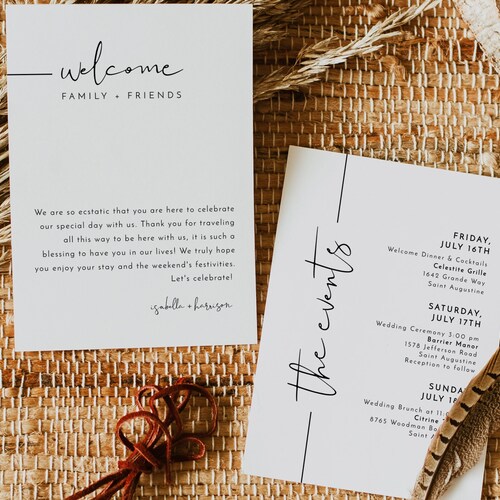 welcome
FAMILY + FRIENDS
We are so ecstatic that you are here to celebrate
our special day with us. Thank you for traveling
all this way to be here with us, it is such a
blessing to have you in our lives! We truly hope
you enjoy your stay and the weekend's festivities.
Let's celebrate!
isabella + harrison
the events
FRIDAY,
JULY 16TH
Welcome Dinner & Cocktails
Celestite Grille
1642 Grande Way
Saint Augustine
SATURDAY,
JULY 17TH
Wedding Ceremony 3:00 pm
Barrier Manor
1578 Jefferson Road
Saint Augustine
Reception to follow
SUND
JULY 18
Wedding Brunch at 11:0
Citrine T
8765 Woodman Bo
Saint Au